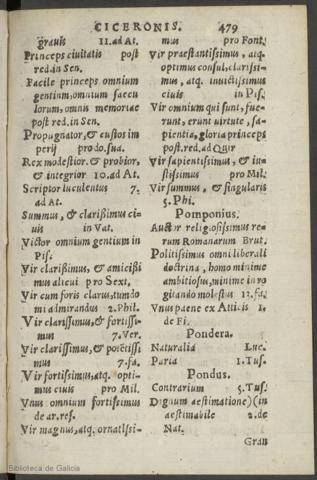 CICERONIS. 479
grauis 11.ad At.
Princeps ciuitatis post
red.in Sen.
Facile princeps omnium
gentium,omnium saecu
lorum,omnis memoriae
post red.in Sen.
Propugnator,& custos im
perij pro do.sua.
Rex modestior.& probior,
& integrior 10.ad At.
Scriptor luculentus 7.
ad At.
Summus,& clarißimus ci-
uis in Vat.
Victor omnium gentium in
Pis.
Vir clarißimus,& amicißi
mus alicui pro Sext,
Vir cum foris clarus,tum do
mi admirandus 2.Phil.
Vir clarissimus,& fortissi-
mus 7.Ver.
Vir clarissimus,& potētissi
mus 7.fa.
Vir fortissimus,atq. opti-
mus ciuis pro Mil.
Vnus omnium fortissimus
de ar.res.
Vir magnus,atq. ornatissi-
mus pro Font.
Vir praestantissimus, atq.
optimus consul,clarissi-
mus, atq. inuictissimus
ciuis in Pis.
Vir omnium qui sunt,fue-
runt, erunt uirtute ,sa-
pientia,gloria princeps
post.red.ad Quir
Vir sapientissimus, & iu-
stissimus pro Mil.
Vir summus, & singularis
5.Phi.
Pomponius.
Auctor religiosissimus re-
rum Romanarum Brut.
Politissimus omni liberali
doctrina , homo minime
ambitiosus,minime in ro
gitando molestus 13.fa.
Vnus paene ex Atticis 1.
de Fi.
Pondera.
Naturalia Luc.
Paria 1.Tus.
Pondus.
Contrarium 5.Tus.
Dignum aestimatione)(in
aestimabile 2.de
Nat.
Gran
Biblioteca de Galicia